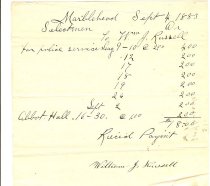 Marblehead Sept 4 1883
Selectmen Dr
To Wm J. Russell
for police service Aug 9-10 @ 200
12 2.00
17 2.00
18 2.00
19 2.00
26 2.00
Sept 2 2.00
Abbot Hall. 16-30. @ 200
Recied Payment
William J. Russell